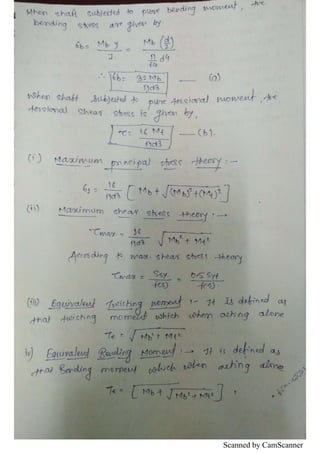 When shaft subjected to pure bending moment, the
bending stress are given by
σb = Mb y / I = Mb (d/2) / π/64 d4
∴ σb = 32 Mb / πd3 —— (a)
When shaft subjected to pure torsional moment, the
torsional shear stress is given by,
τ = 16 Mt / πd3 —— (b).
(i) Maximum principal stress theory :-
σ1 = 16 / πd3 [ Mb + √(Mb)2 + (Mt)2 ]
(ii) Maximum shear stress theory :-
τmax = 16 / πd3 √Mb2 + Mt2
According to max. shear stress theory
τmax = Ssy / f(s) = 0.5 Syt / f(s).
(iii) Equivalent Twisting moment :- It is defined as
that twisting moment which when acting alone
Te = √Mb2 + Mt2
iv) Equivalent Bending Moment :- It is defined as
that Bending moment which when acting alone
Te = [ Mb + √Mb2 + Mt2 ]
Scanned by CamScanner